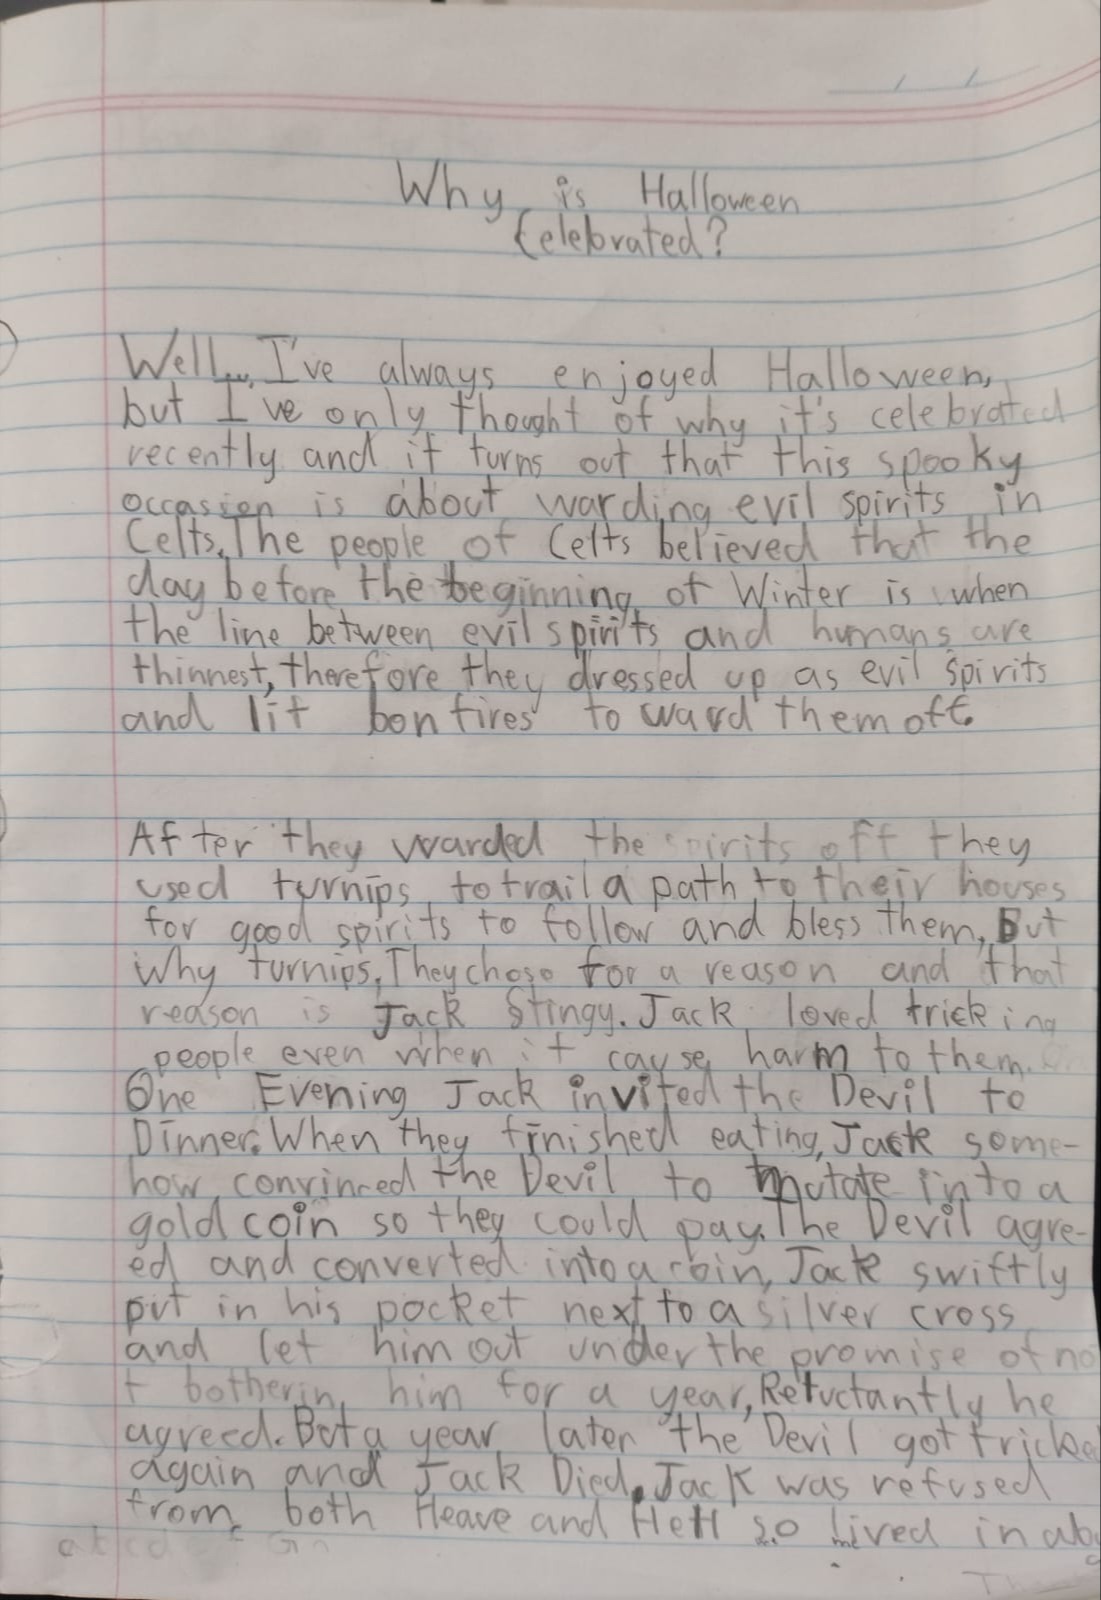 Why is Halloween
Celebrated?
Well...., I've always enjoyed Halloween,
but I've only thought of why it's celebrated
recently and it turns out that this spooky
occasion is about warding evil spirits in
Celts. The people of Celts believed that the
day before the beginning of Winter is when
the line between evil spirits and humans are
thinnest, therefore they dressed up as evil spirits
and lit bonfires to ward them off.
After they warded the spirits off they
used turnips to trail a path to their houses
for good spirits to follow and bless them, But
Why turnips, They chose for a reason and that
reason is Jack Stingy. Jack loved tricking
people even when it cause harm to them.
One Evening Jack invited the Devil to
Dinner. When they finished eating, Jack some-
how convinced the Devil to mutate into a
gold coin so they could pay. The Devil agre-
ed and converted into a coin, Jack swiftly
put in his pocket next to a silver cross
and let him out under the promise of no
t botherin him for a year, Reluctantly he
agreed. But a year later the Devil got tricked
again and Jack Died. Jack was refused
from both Heave and Hell so lived in